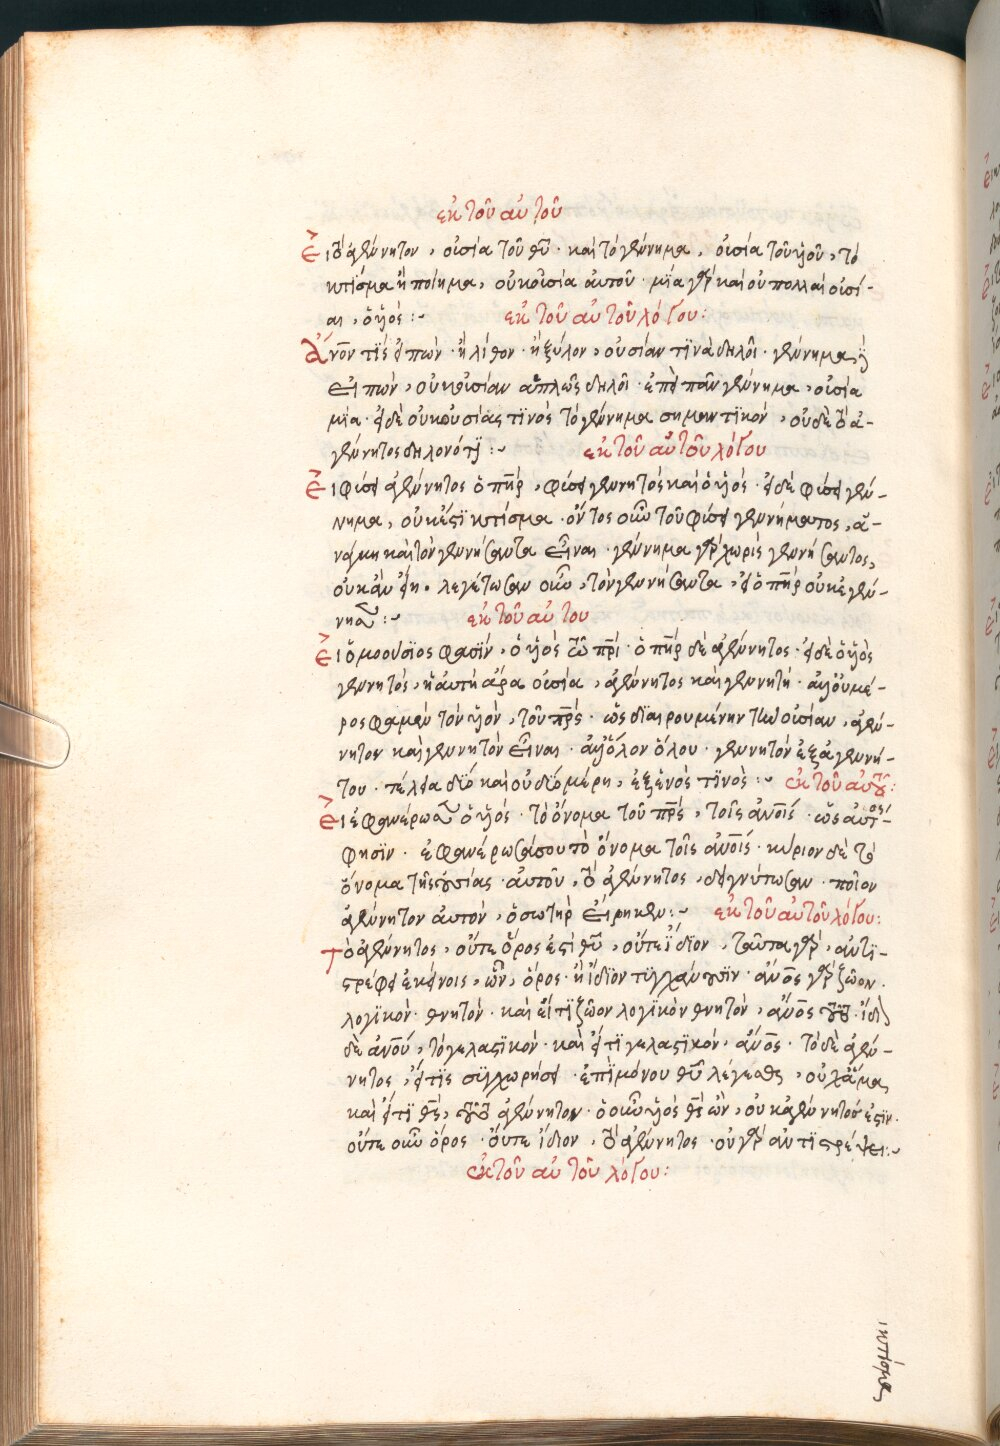 ἐκ τοῦ αὐτοῦ
Εἰ τὸ ἀγέννητον, οὐσία τοῦ θυ· καὶ τὸ γέννημα, οὐσία τοῦ υἱοῦ, τὸ
κτίσμα ἢ ποίημα, οὐκ οὐσία αὐτοῦ· μία γὰρ καὶ οὐ πολλαὶ οὐσί-
αι, ὁ υἱός :~ ἐκ τοῦ αὐτοῦ λόγου:
Ἄνον τὶς εἰπὼν· ἢ λίθον· ἢ ξύλον, οὐσίαν τϊνὰ δηλοῖ· γέννημα
εἰπὼν, οὐκ οὐσίαν ἁπλῶς δηλοῖ· ἐπεὶ πᾶν γέννημα, οὐσία
μία· εἰ δὲ οὐκ οὐσίας τϊνὸς τὸ γέννημα σημαντϊκὸν, οὐδὲ τὸ ἀ-
γέννητος δηλονότϊ :~ ἐκ τοῦ αὐτοῦ λόγου
Εἰ φύσει ἀγέννητος ὁ πηρ, φύσει γεννητὸς καὶ ὁ υἱός· εἰ δὲ φύσει γέν-
νημα, οὐκέτϊ κτίσμα· ὄντος οὖν τοῦ φύσει γεννήματος, ἀ-
νάγκη καὶ τὸν γεννήσαντα εἶναι· γέννημα γὰρ χωρὶς γεννήσαντος,
οὐκ ἂν εἴη. λεγέτωσαν οὖν, τὸν γεννήσαντα, εἰ ὁ πηρ οὐκ ἐγέν-
νησεν :~ ἐκ τοῦ αὐτου
Εἰ ὁμοούσϊος φασϊν, ὁ υἱὸς τῶ πρι· ὁ πηρ δὲ ἀγέννητος· εἰ δὲ ὁ υἱὸς
γεννητὸς, ἡ αὐτὴ ἄρα οὐσία, ἀγέννητος καὶ γεννητή· οὐ μέ-
ρος φαμὲν τὸν υἱὸν, τοῦ πρς· ὡς διαιρουμένην τὴν οὐσίαν, ἀγέν-
νητον καὶ γεννητὸν εἶναι· ὅλον ὅλου· γεννητὸν ἐξ ἀγεννή-
του· τέλεια δύο καὶ οὐ δύο μέρη, ἐξ ἑνός τϊνος :~ ἐκ τοῦ αὐτοῦ:
Εἰ ἐφανέρωσεν ὁ υἱός· τὸ ὄνομα τοῦ πρς, τοῖς ἀνοις· ὡς αὐτός
φησϊν· ἐφανέρωσά σου τὸ ὄνομα τοῖς ἀνοις· κύριον δὲ τὸ
ὄνομα τῆς οὐσίας αὐτοῦ, τὸ ἀγέννητος, δεικνύτωσαν· ποῖον
ἀγέννητον αὐτὸν, ὁ σωτὴρ εἴρηκεν :~ ἐκ τοῦ αὐτοῦ λόγου:
Τὸ ἀγέννητος, οὔτε ὅρος ἐστὶ θυ, οὔτε ἴδϊον, ταῦτα γὰρ, ἀντϊ-
στρέφει ἐκείνοις, ὧν, ὅρος· ἢ ἴδϊον τϋγχάνουσϊν· ἀνος γὰρ ζῶον·
λογϊκὸν· θνητὸν· καὶ εἴ τϊ ζῶον λογϊκὸν θνητὸν, ἀνος τοῦτο· ἴδιον
δὲ ἀνου, τὸ γελαστϊκὸν· καὶ εἴ τϊ γελαστϊκὸν, ἀνος· τὸ δὲ ἀγέν-
νητος, εἴ τϊς συγχωρήσει· ἐπὶ μόνου θυ λέγεσθαι, οὐχ ἅμα
καὶ εἴ τϊ θς, τοῦτο ἀγέννητον· ὁ οὖν υἱὸς θς ὢν, οὐκ ἀγέννητός ἐστϊν.
οὔτε οὖν ὅρος· οὔτε ἴδιον, τὸ ἀγέννητος· οὐ γὰρ ἀντϊστρέψει :~
ἐκ τοῦ αὐτοῦ λόγου:
κτίσμα